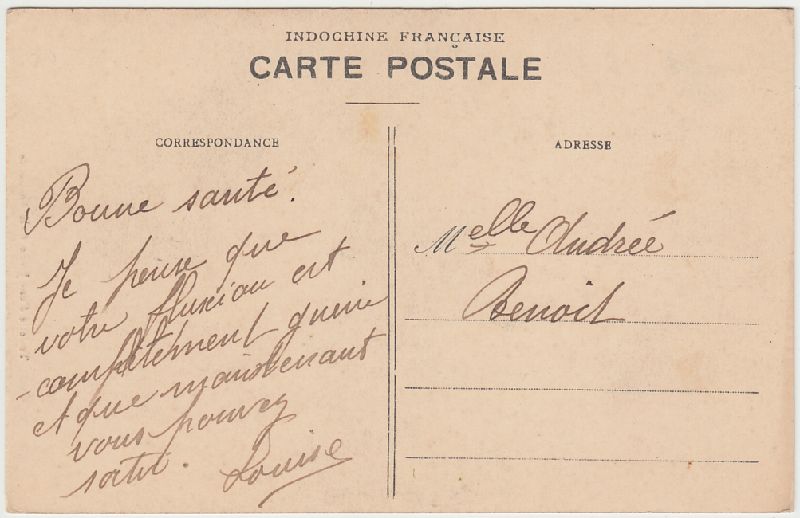 INDOCHINE FRANÇAISE
CARTE POSTALE
CORRESPONDANCE
Bonne santé.
Je pense que
votre fluxion est
complètement guérie
et que maintenant
vous pouvez
sortir.
Louise
ADRESSE
Melle Andrée
Benoit